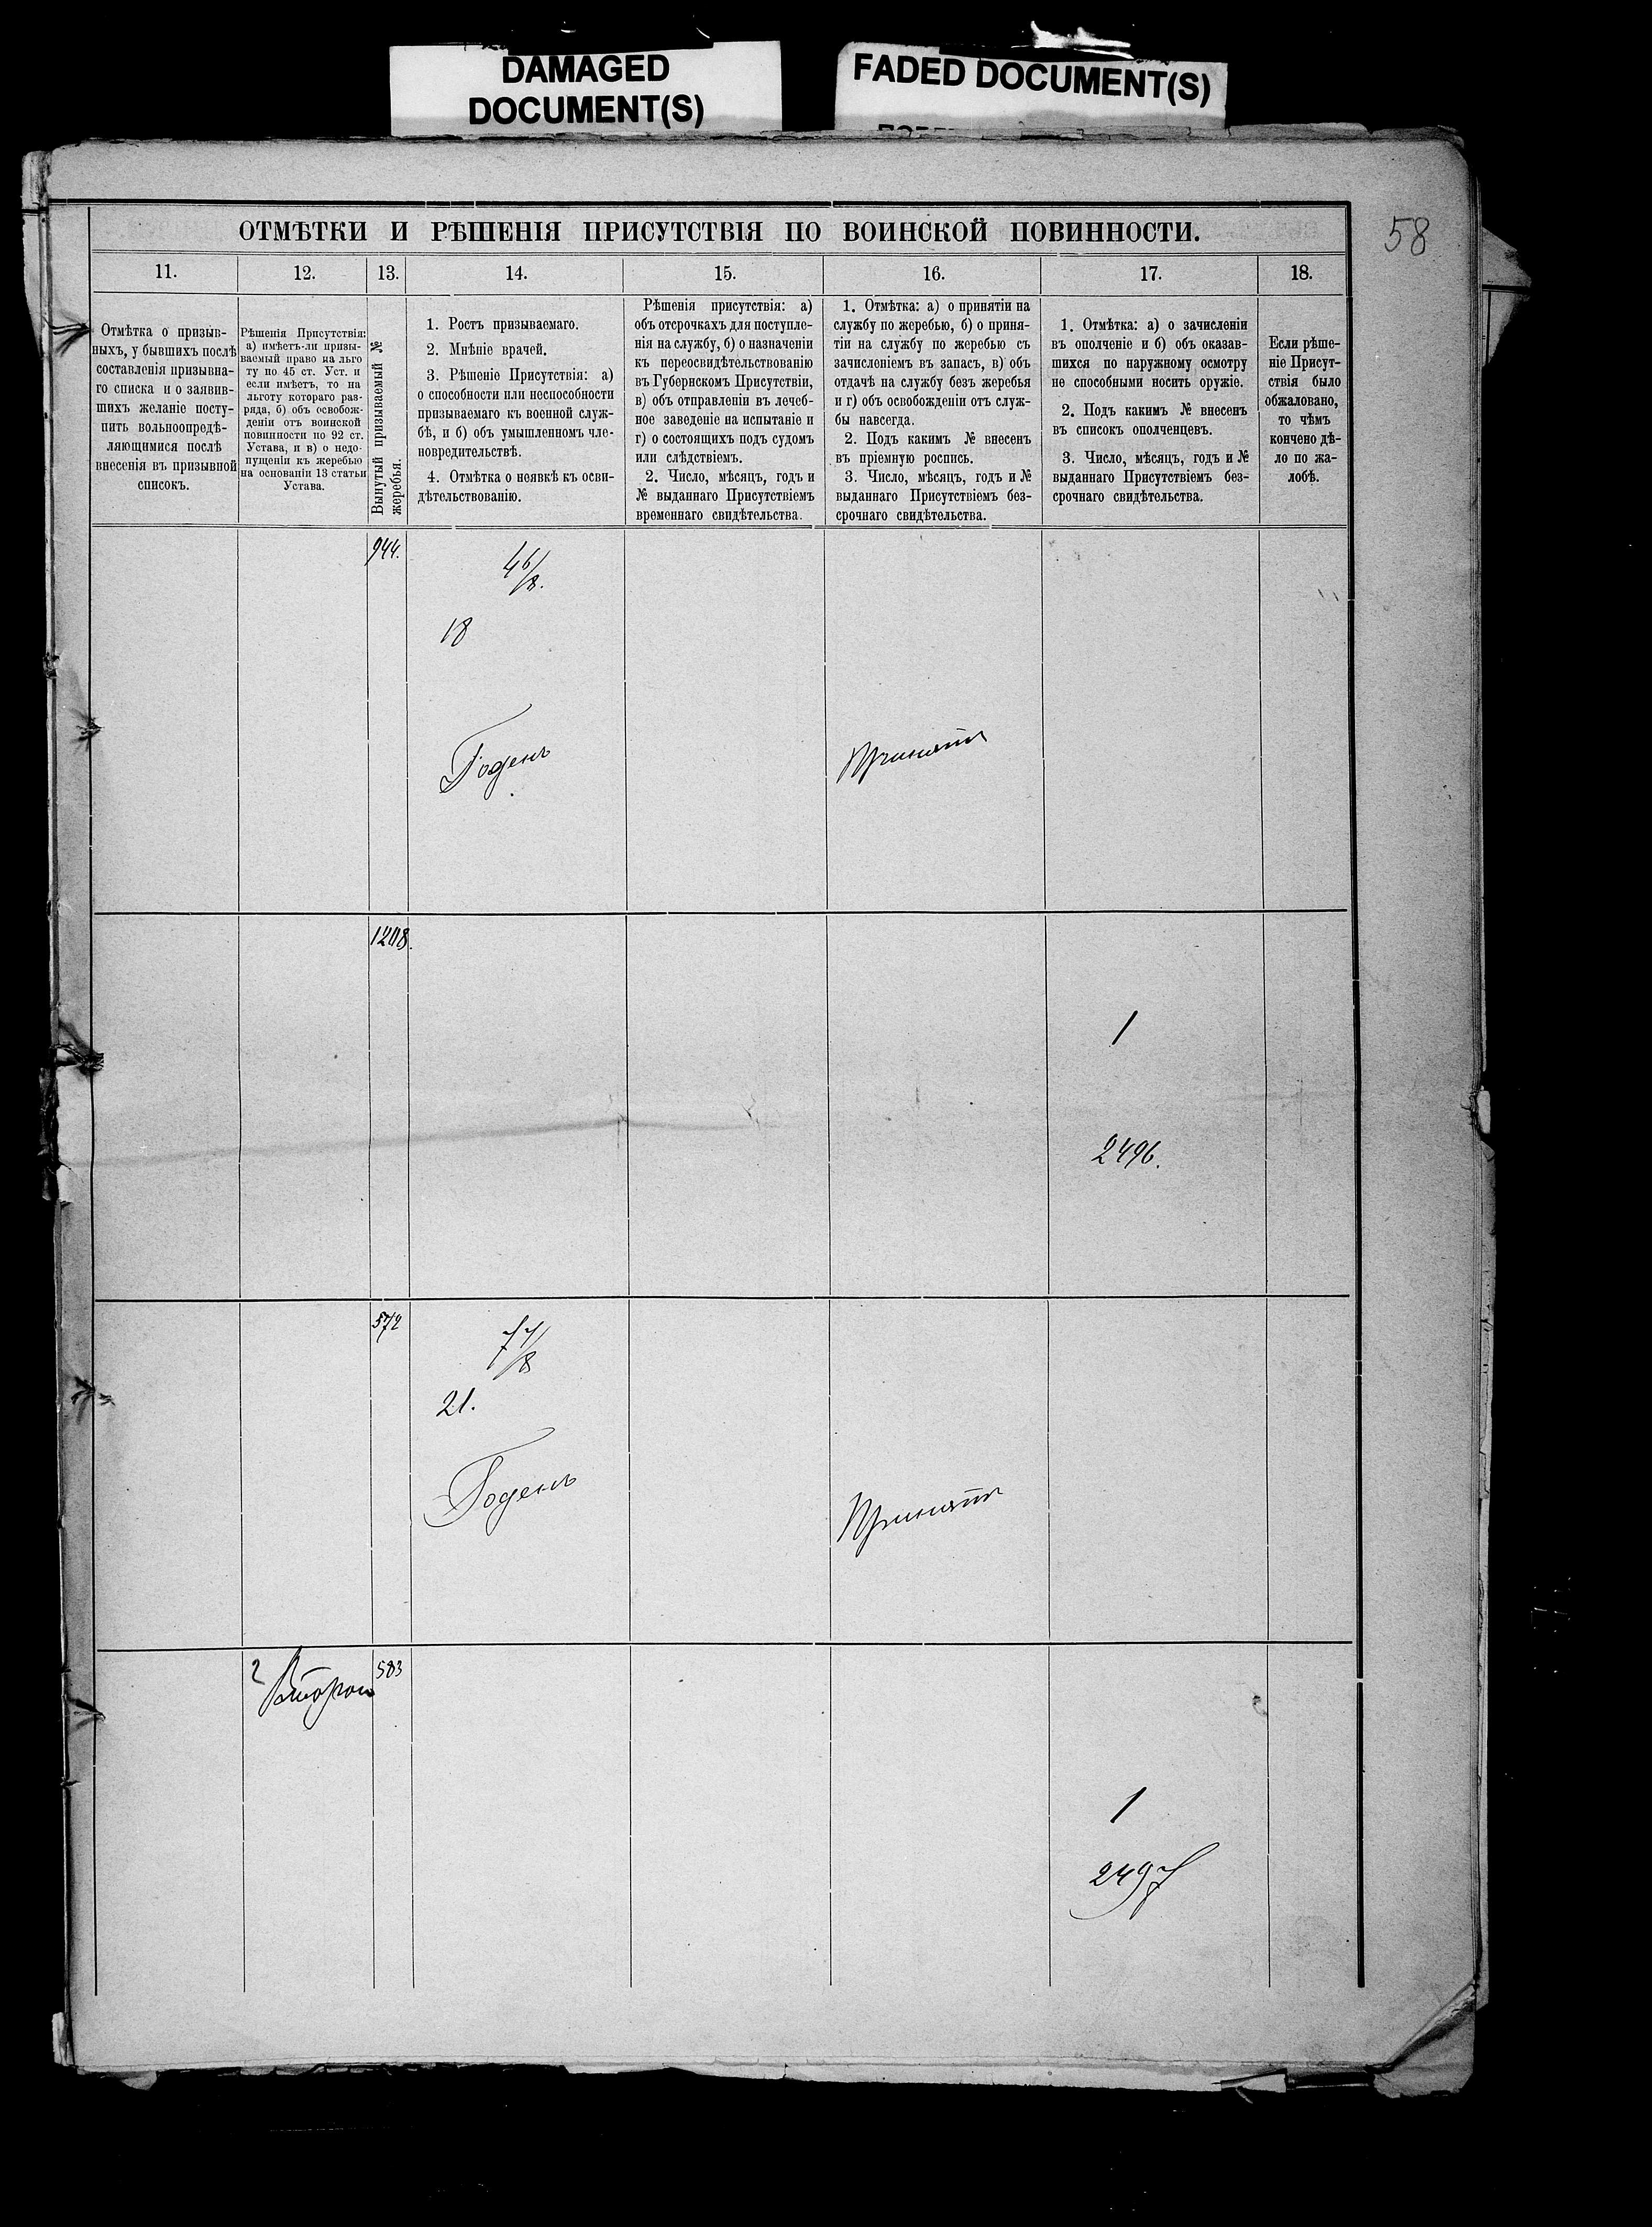 DAMAGED
DOCUMENT(S)
FADED DOCUMENT(S)
58
ОТМѢТКИ И РѢШЕНІЯ ПРИСУТСТВІЯ ПО ВОИНСКОЙ ПОВИННОСТИ.
11.
12.
13.
14.
15.
16.
17.
18.
Отмѣтка о призыв-
ныхъ, у бывшихъ послѣ
составленія призывна-
го списка и о заявив-
шихъ желаніе посту-
пить вольноопредѣ-
ляющимися послѣ
внесенія въ призывной
списокъ.
Рѣшенія Присутствія:
а) имѣетъ-ли призы-
ваемый право на льго
ту по 45 ст. Уст. и
если имѣетъ, то на
льготу котораго раз-
ряда, б) объ освобож-
деніи отъ воинской
повинности по 92 ст.
Устава, и в) о недо-
пущеніи къ жеребью
на основаніи 13 статьи
Устава.
Вынутый призываемый №
жеребья.
1. Ростъ призываемаго.
2. Мнѣніе врачей.
3. Рѣшеніе Присутствія: а)
о способности или неспособности
призываемаго къ военной служ-
бѣ, и б) объ умышленномъ чле-
новредительствѣ.
4. Отмѣтка о неявкѣ къ осви-
дѣтельствованію.
Рѣшенія присутствія: а)
объ отсрочкахъ для поступле-
нія на службу, б) о назначеніи
къ переосвидѣтельствованію
въ Губернскомъ Присутствіи,
в) объ отправленіи въ лечеб-
ное заведеніе на испытаніе и
г) о состоящихъ подъ судомъ
или слѣдствіемъ.
2. Число, мѣсяцъ, годъ и
№ выданнаго Присутствіемъ
временнаго свидѣтельства.
1. Отмѣтка: а) о принятіи на
службу по жеребью, б) о приня-
тіи на службу по жеребью съ
зачисленіемъ въ запасъ, в) объ
отдачѣ на службу безъ жеребья
и г) объ освобожденіи отъ служ-
бы навсегда.
2. Подъ какимъ № внесенъ
въ пріемную роспись.
3. Число, мѣсяцъ, годъ и №
выданнаго Присутствіемъ без-
срочнаго свидѣтельства.
1. Отмѣтка: а) о зачисленіи
въ ополченіе и б) объ оказав-
шихся по наружному осмотру
не способными носить оружіе.
2. Подъ какимъ № внесенъ
въ списокъ ополченцевъ.
3. Число, мѣсяцъ, годъ и №
выданнаго Присутствіемъ без-
срочнаго свидѣтельства.
Если рѣше-
ніе Присут-
ствія было
обжаловано,
то чѣмъ
кончено дѣ-
ло по жа-
лобѣ.
944.
4 6/8.
18
Годенъ
Принятъ
1208.
1
2496.
572
7 7/8
21.
Годенъ
Принятъ
583
2
Второй
1
2497